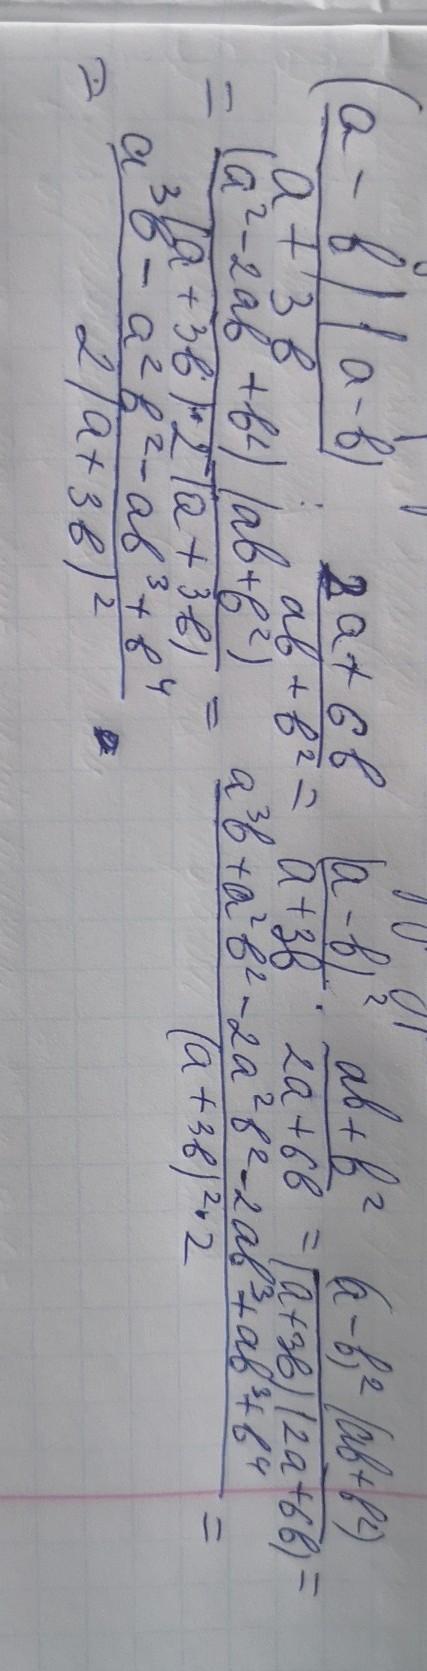 (a - b)(a - b) / a + 3b : 2a + 6b / ab + b² = (a - b)² / a + 3b · ab + b² / 2a + 6b = (a - b)² (ab + b²) / (a + 3b)(2a + 6b) =
= (a² - 2ab + b²)(ab + b²) / (a + 3b) · 2(a + 3b) = a³b + a²b² - 2a²b² - 2ab³ + ab³ + b⁴ / (a + 3b)² · 2 =
= a³b - a²b² - ab³ + b⁴ / 2(a + 3b)²